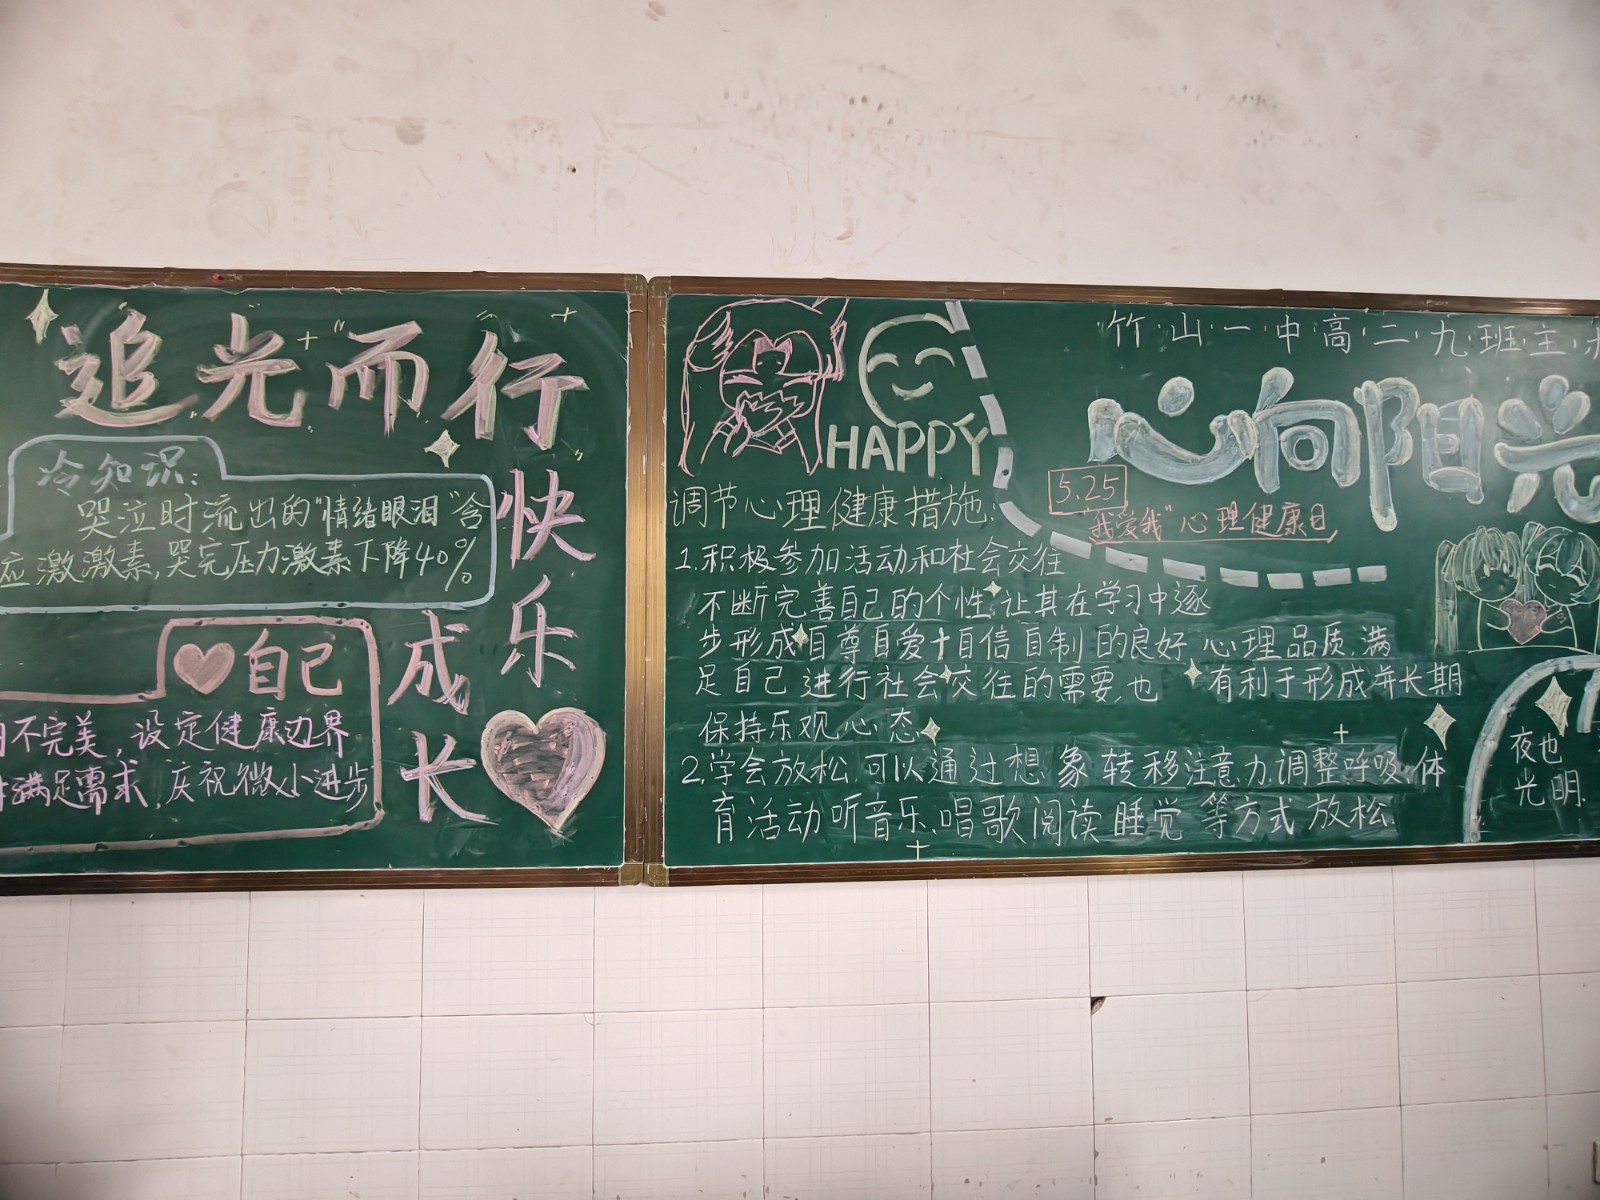 追光而行
快乐
成长
冷知识:
哭泣时流出的"情绪眼泪"含
应激激素,哭完压力激素下降40%
自己
不完美,设定健康边界
满足需求,庆祝微小进步
HAPPY
调节心理健康措施:
1.积极参加活动和社会交往
不断完善自己的个性,让其在学习中逐
步形成自尊自爱自信自制的良好心理品质,满
足自己进行社会交往的需要,也有利于形成并长期
保持乐观心态
2.学会放松,可以通过想象转移注意力调整呼吸、体
育活动听音乐、唱歌阅读睡觉等方式放松.
竹山一中高二九班主
心向阳光
5.25
"我爱我"心理健康日
夜也
光明.